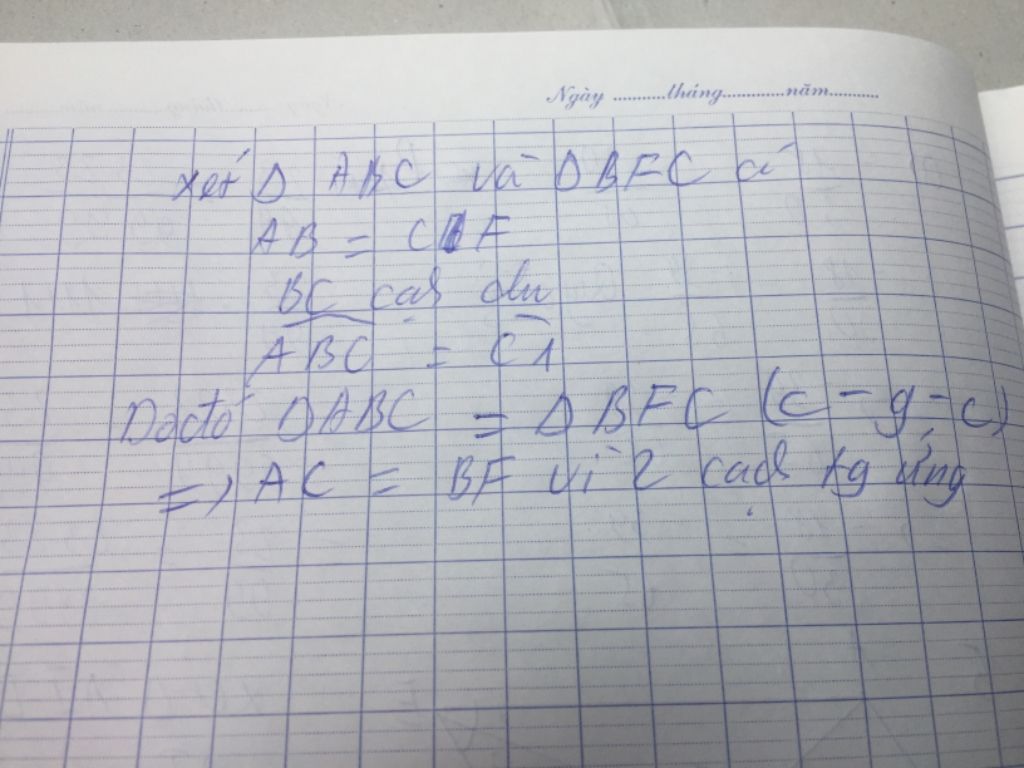 Ngày ...........tháng............năm..........
xét Δ ABC và Δ BFC có
AB = CF
BC cạh chu
ABC = C1
Do đó ΔABC = Δ BFC (c - g - c)
=> AC = BF vì 2 cạh tg ứng